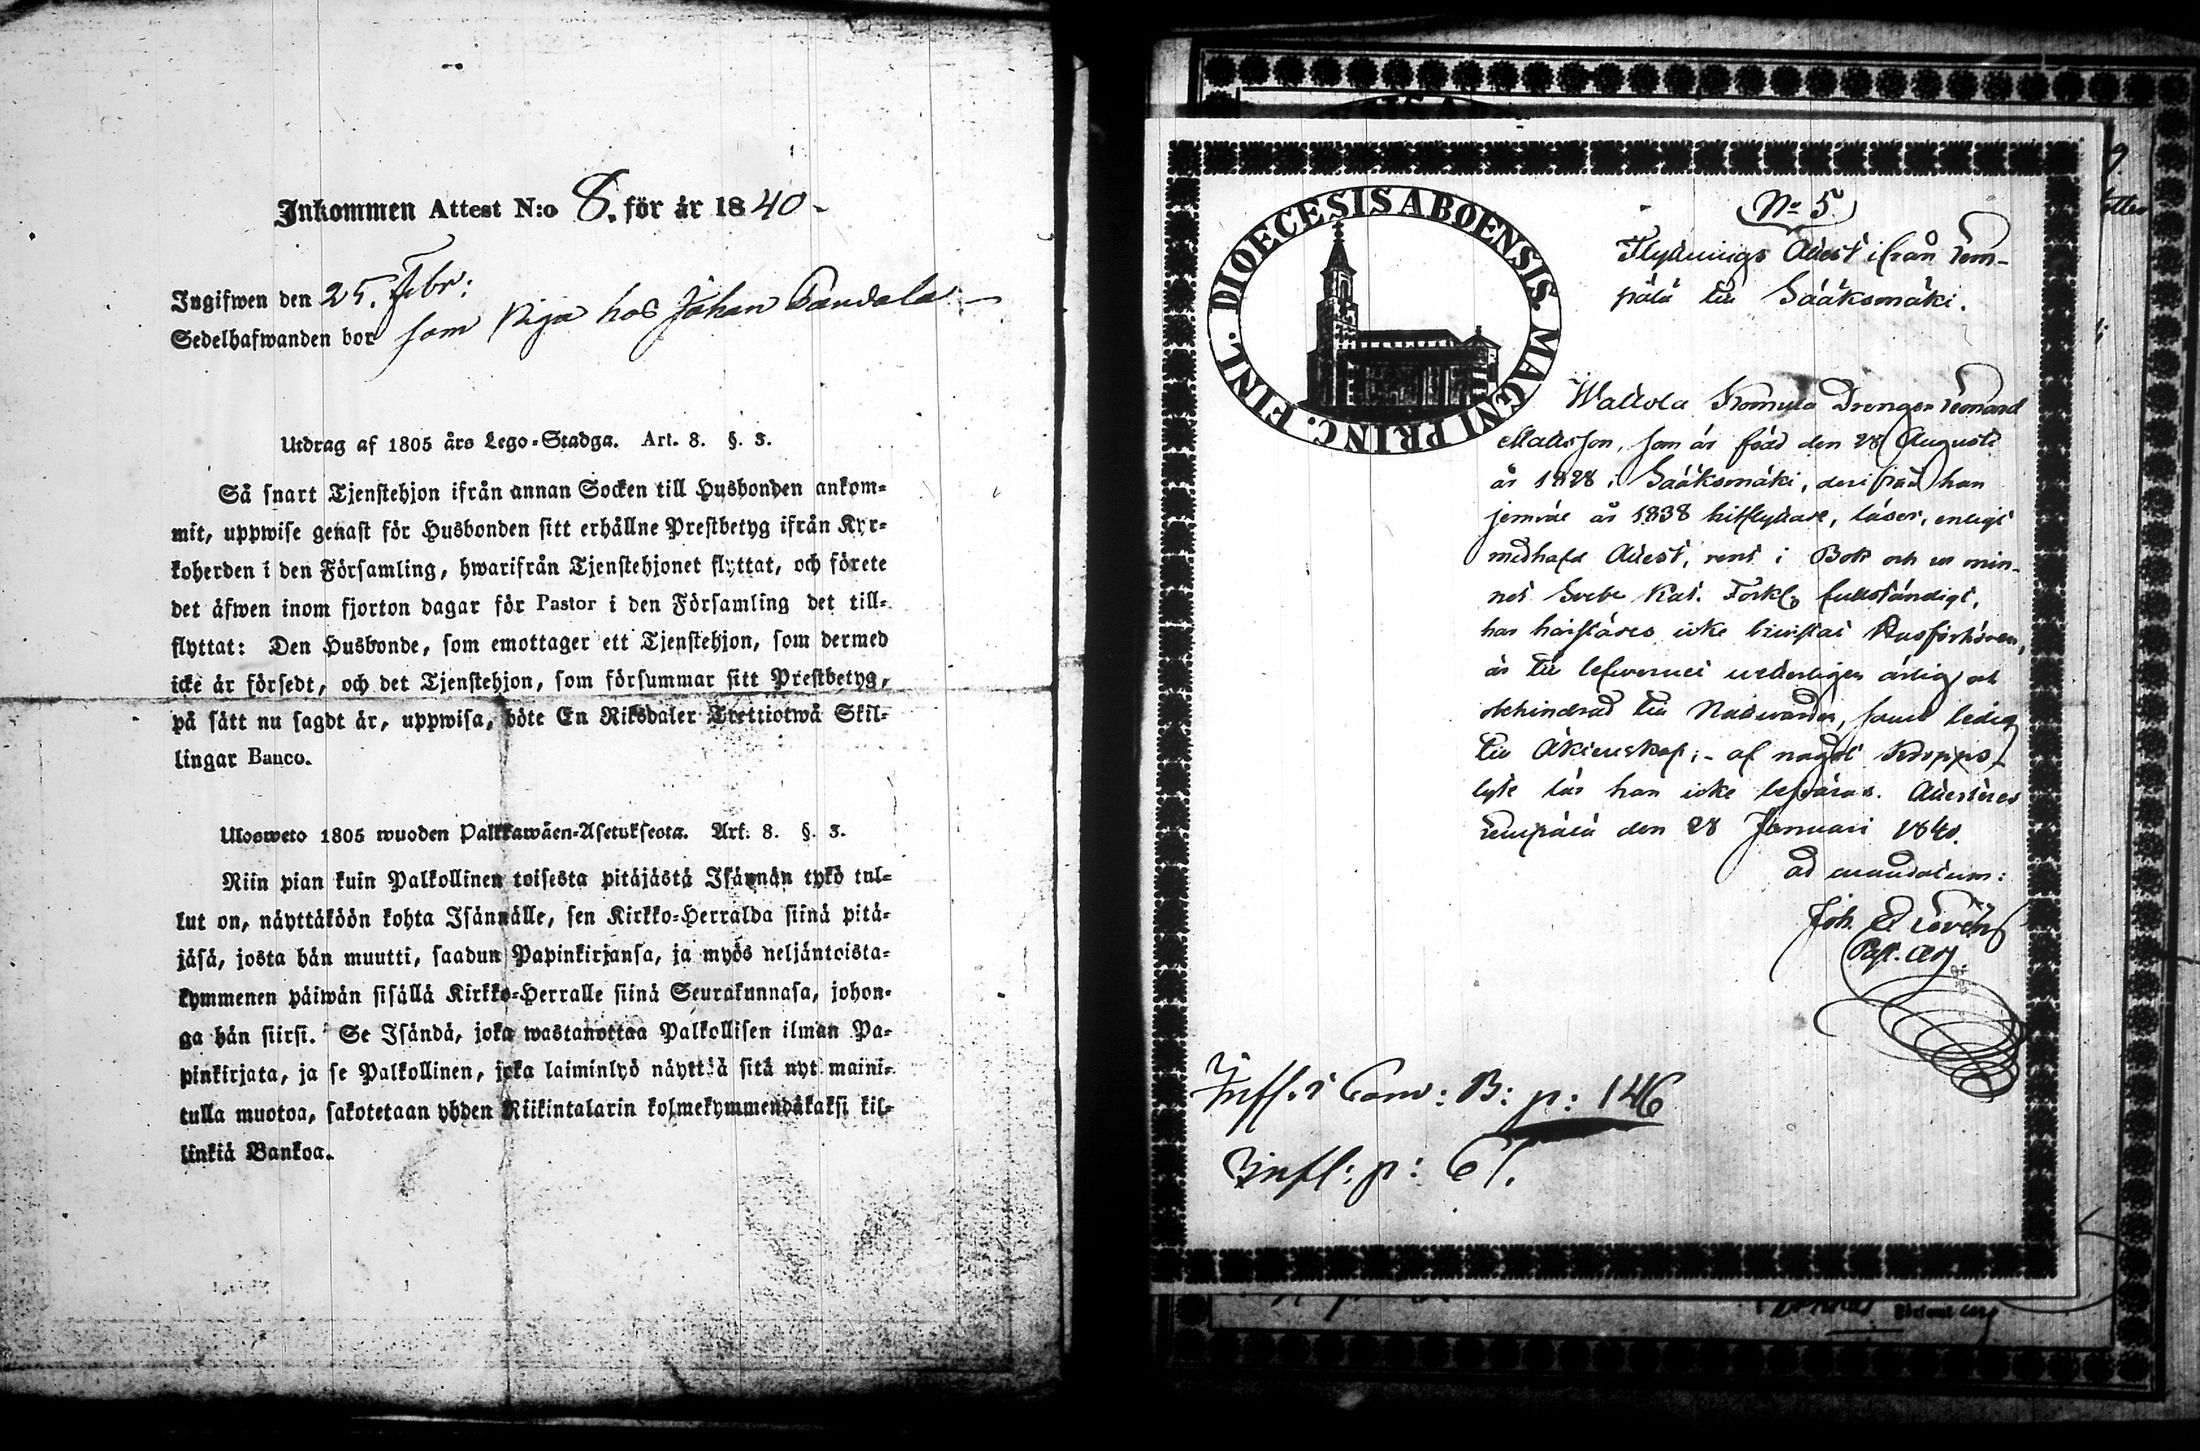 Inkommen Attest N:o 8. för år 1840
Ingifwen den 25. Febr:
Sedelhafwanden bor som Piga hos Johan
Utdrag af 1805 års Lego-Stadga. Art. 8. §. 3.
Så snart Tjenstehjon ifrån annan Socken till Husbonden ankom-
mit, uppwise genast för Husbonden sitt erhållne Prestbetyg ifrån Kyr-
koherden i den Församling, hwarifrån Tjenstehjonet flyttat, och förete
det äfwen inom fjorton dagar för Pastor i den Församling det till-
flyttat: Den Husbonde, som emottager ett Tjenstehjon, som dermed
icke är försedt, och det Tjenstehjon, som försummar sitt Prestbetyg,
på sätt nu sagdt är, uppwisa, böte En Riksdaler Trettiotwå Skil-
lingar Banco.
Ulosweto 1805 wuoden Palkkawäen-Asetuksesta. Art. 8. §. 3.
Niin pian kuin Palkollinen toisesta pitäjästä Isännän tykö tul-
lut on, näyttäköön kohta Isännälle, sen Kirkko-Herralda siinä pitä-
jäsä, josta hän muutti, saadun Papinkirjansa, ja myös neljäntoista-
kymmenen päiwän sisällä Kirkko-Herralle siinä Seurakunnasa, johon-
ga hän siirsi. Se Isändä, joka wastanottaa Palkollisen ilman Pa-
pinkirjata, ja se Palkollinen, joka laiminlyö näyttää sitä nyt maini-
tulla muotoa, sakotetaan yhden Riikintalarin kolmekymmendäkaksi kil-
linkiä Bankoa.
DIOECESIS ABOENSIS. MAGNI PRINC. FINL.
No 5.
Flyttnings Attest ifrån Lem-
pälä till Sääksmäki.
Drengen Leonard
Mattsson, som är född den 28 Augusti
år 1828 i Sääksmäki, derifrån han
jemväl år 1838 hitflyttat, läser, enligt
medhafd Attest, rent i Bok och ur min-
net Svebe Kat. Förkl. fullständigt,
har härstädes icke bivistat Husförhören,
är till lefvernet veterligen ärlig och
ohindrad till Nattvarden, samt ledig
till Äktenskap; - af något kropps-
lyte lär han icke besväras. Attesteras
Lempälä den 28 Januari 1840.
ad mandatum:
Joh.
Infl. i Com: B: p: 146
Infl: p: 61.